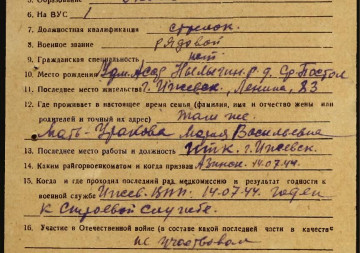 6. На ВУС 1
7. Должностная квалификация стрелок.
8. Военное звание рядовой
9. Гражданская специальность нет
10. Место рождения Удм. Асср д. Ср. Постол
11. Последнее место жительства г. Ижевск, Ленина, 83
12. Где проживает в настоящее время семья (фамилия, имя и отчество жены или
родителей и точный их адрес) Там же.
Мать - Мария Васильевна
13. Последнее место работы и должность г. Ижевск.
14. Каким райгорвоенкоматом и когда призван Азинск. 14.07.44.
15. Когда и где проходил последний раз медкомиссию и результат годности к
военной службе Ижев. ВПП. 14-07-44. годен
к строевой службе.
16. Участие в Отечественной войне (в составе какой последней части в качестве
не участвовал